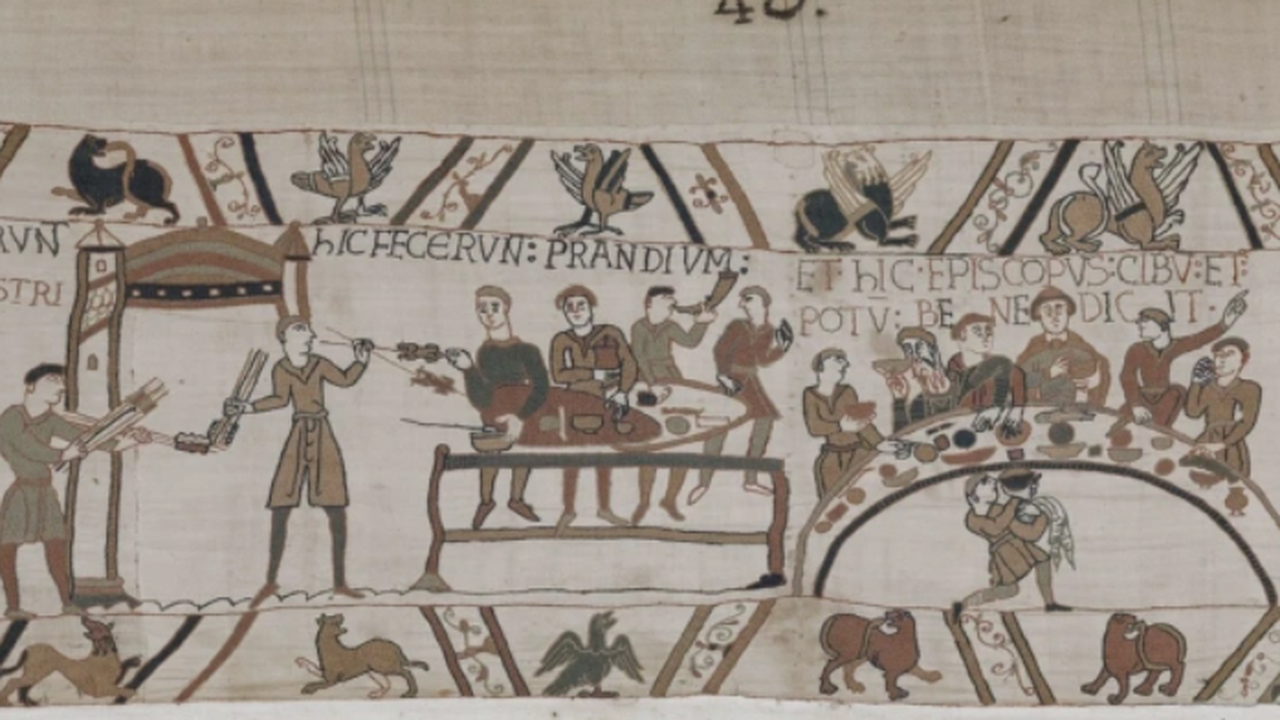 48.
RVNT
STRI
hIC FECERVN: PRANDIVM:
ET hIC·EPISCOPVS:CIBV:ET:
POTV: BE NE DIC IT·